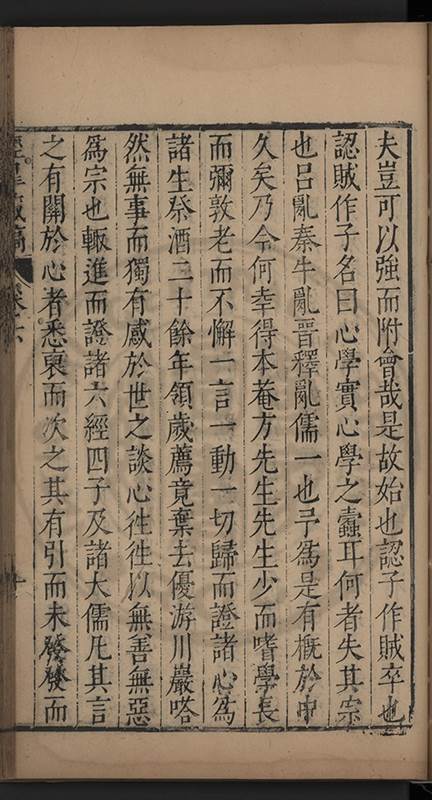 夫豈可以強而附會哉是故始也認子作賊卒也
認賊作子名曰心學實心學之蠹耳何者失其宗
也呂亂秦牛亂晉釋亂儒一也予為是有概於中
久矣乃今何幸得本菴方先生先生少而嗜學長
而彌敦老而不懈一言一動一切歸而證諸心為
諸生祭酒二十餘年領歲薦竟棄去優游川巖嗒
然無事而獨有感於世之談心徃徃以無善無惡
為宗也輙進而證諸六經四子及諸大儒凡其言
之有關於心者悉裒而次之其有引而未發發而
藏稿
卷六